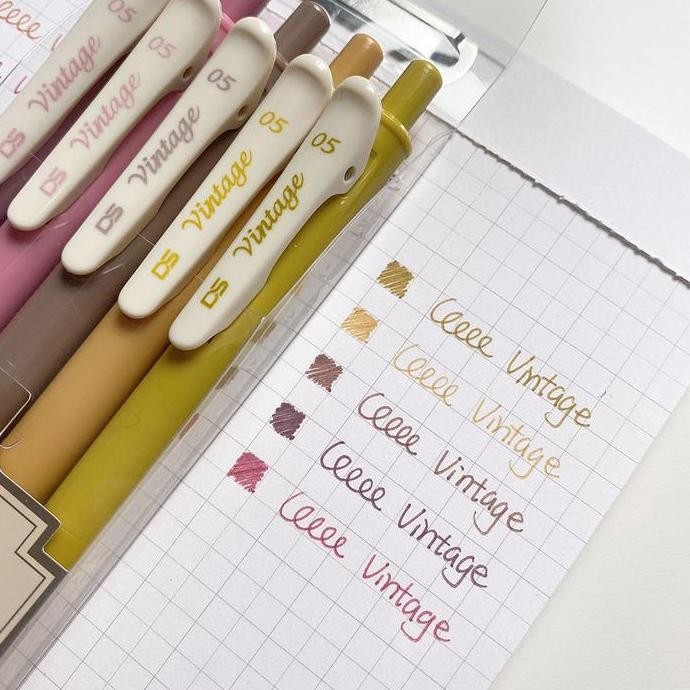 05 Vintage DS
05 Vintage DS
05 Vintage DS
05 Vintage DS
05 Vintage DS
Vintage
Vintage
Vintage
Vintage
Vintage